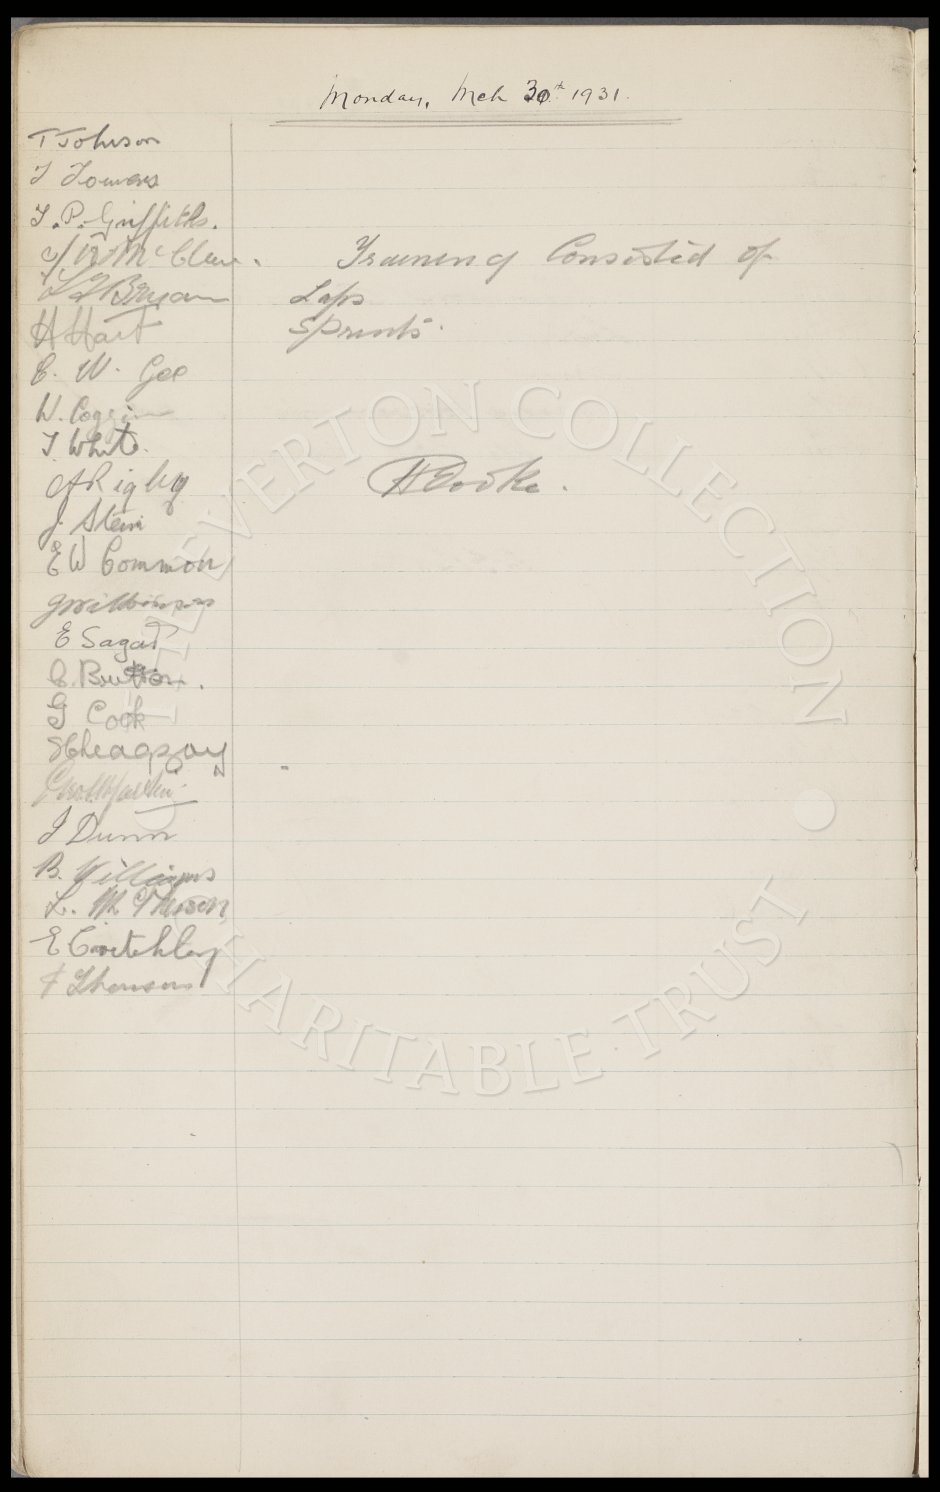 Monday, Mch 30th 1931.
T Johnson
T Towers
T. P. Griffiths.
J. R. McClure.
L F Bryan
H Hart
C. W. Gee
W. Coggins
T White.
A Rigby
J. Stein
E W Common
J Wilkinson
E Sagar
C. Britton.
G Cook
J Dunn
B. Williams
L. McPherson
E Critchley
F Thomson
Training Consisted of
Laps
Sprints.
H Cooke.
THE EVERTON COLLECTION
CHARITABLE TRUST